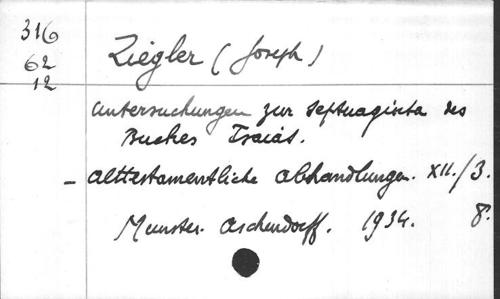 316
62
12
Ziegler (Joseph)
Untersuchungen zur Septuaginta des
Buches Isaias.
- Alttestamentliche Abhandlungen. XII./3.
Munster. Aschendorff. 1934. 8°.